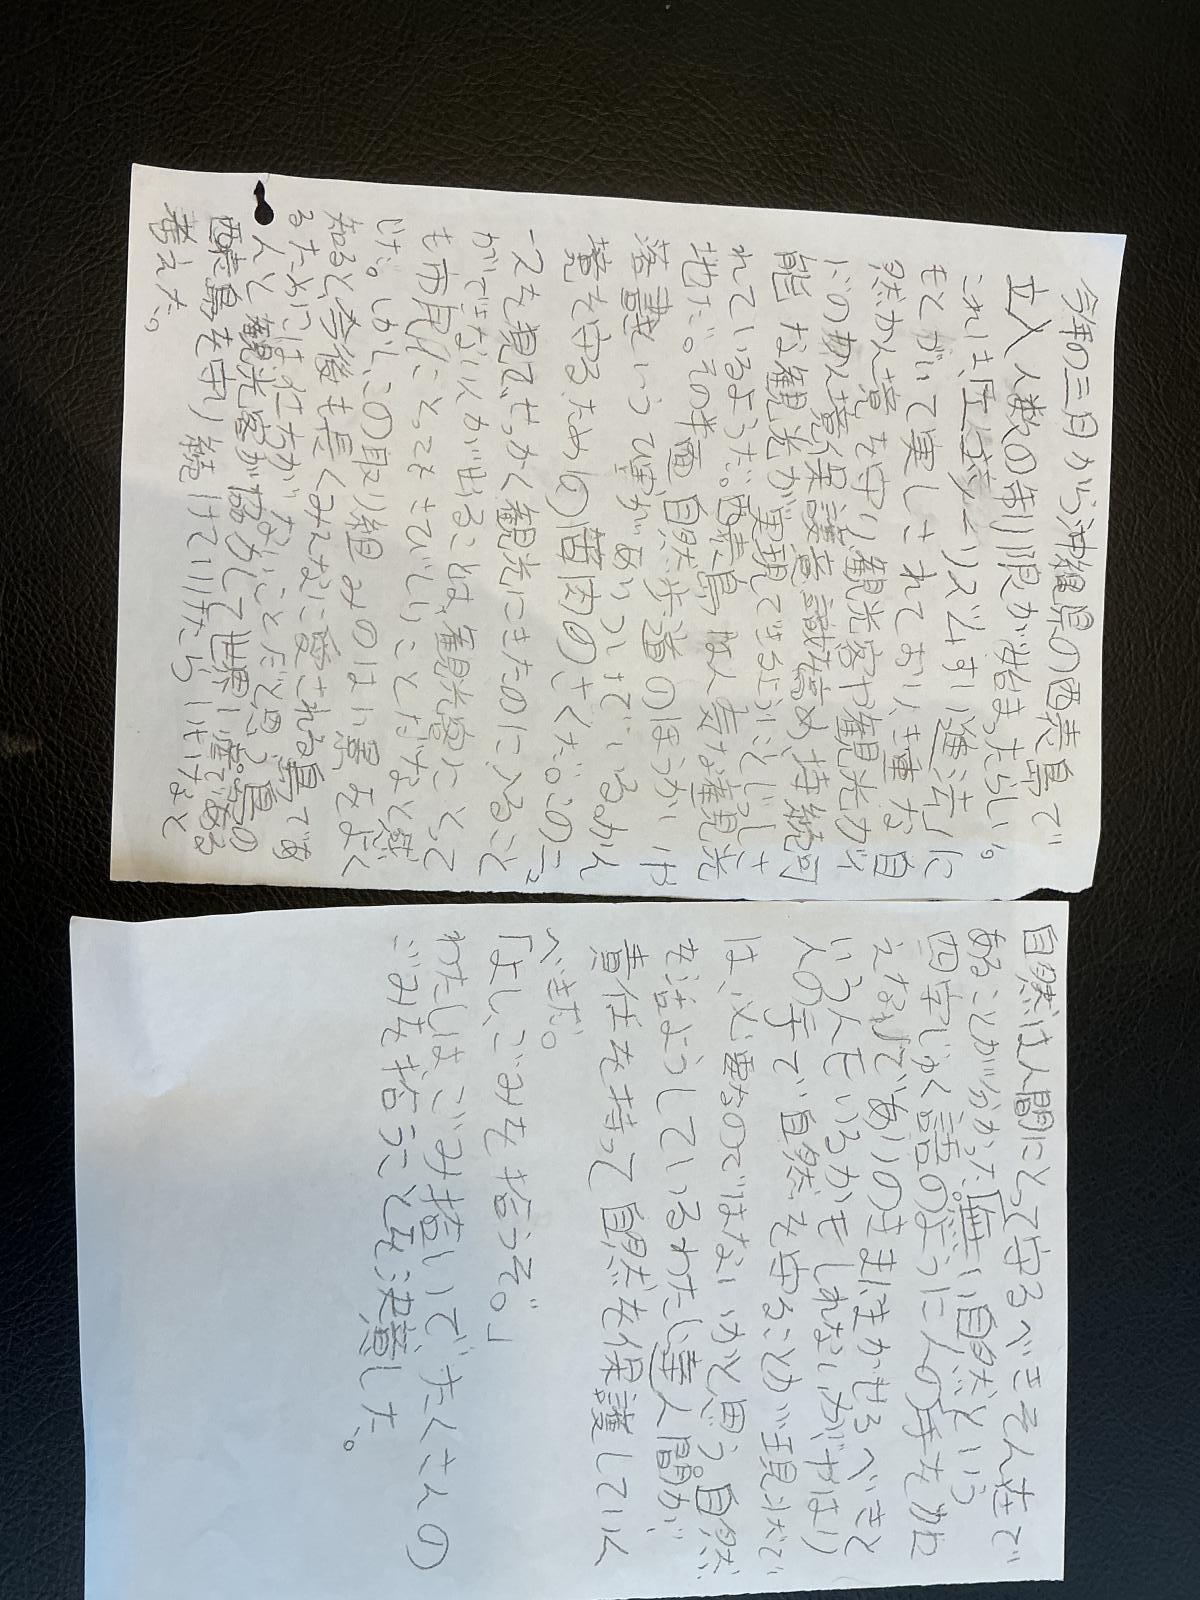 今年の三月から沖縄県の西表島で
立入人数の制限が始まったらしい。
これは、
もとづいて実しされており、き重な自
然かん境を守り、観光客や観光ガイ
ドのかん境保護意識を高め、持続可
能な観光が実現できるようにと
れているようだ。西表島は人気な観光
地だ。その半面、自然歩道のほうかいや
落書きという
境を守るための苦肉のさくだ。このニュ
ースを見て、せっかく観光にきたのに入ること
ができない人が出ることは、観光客にとって
も市民にとってもさびしいことだなと感
じた。しかし、この取り組みのはい景をよく
知ると、今後も長くみんなに愛される島であ
るためには仕方がないことだと思う。島の
人と観光客が協力して世界い産である
西表島を守り続けていけたらいいなと
考えた。
自然は人間にとって守るべきそん在で
あることが分かった。無い自然という
四字じゅく語のように人の手をくわ
えないで、ありのままにまかせるべきと
いう人もいるかもしれないが、やはり
人の手で自然を守ることが現状で
は、必要なのではないかと思う。自然
を活ようしているわたし達人間が、
責任を持って自然を保護していく
べきだ。
「よし、ごみを拾うぞ。」
わたしはごみ拾いで、たくさんの
ごみを拾うことを決意した。